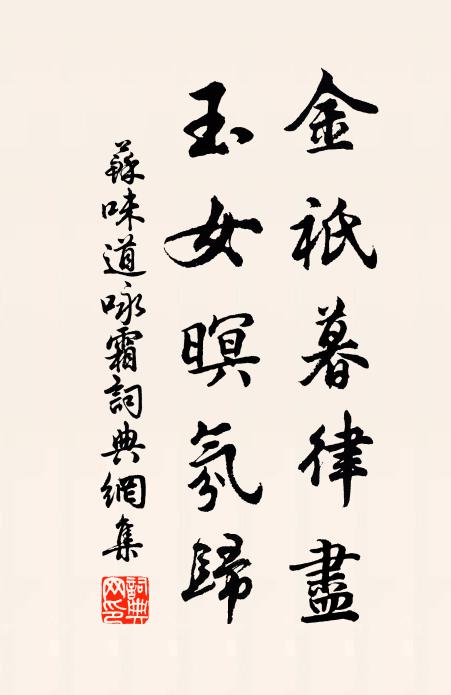 金祇暮律盡
玉女暝氛歸
蘇味道咏霜詞典網集
詞典網印